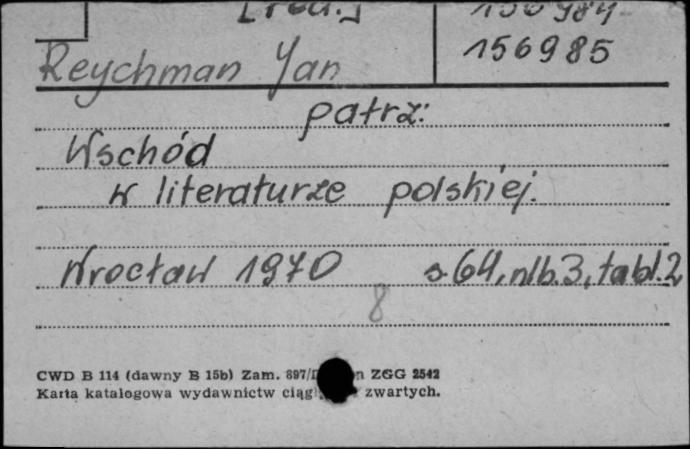 [red.] 156984
Reychman Jan 156985
patrz:
Wschód
w literaturze polskiej.
Wrocław 1970 s. 64, nlb. 3, tabl. 2
8
CWD B 114 (dawny B 15b) Zam. 897/ n ZGG 2542
Karta katalogowa wydawnictw ciąg zwartych.